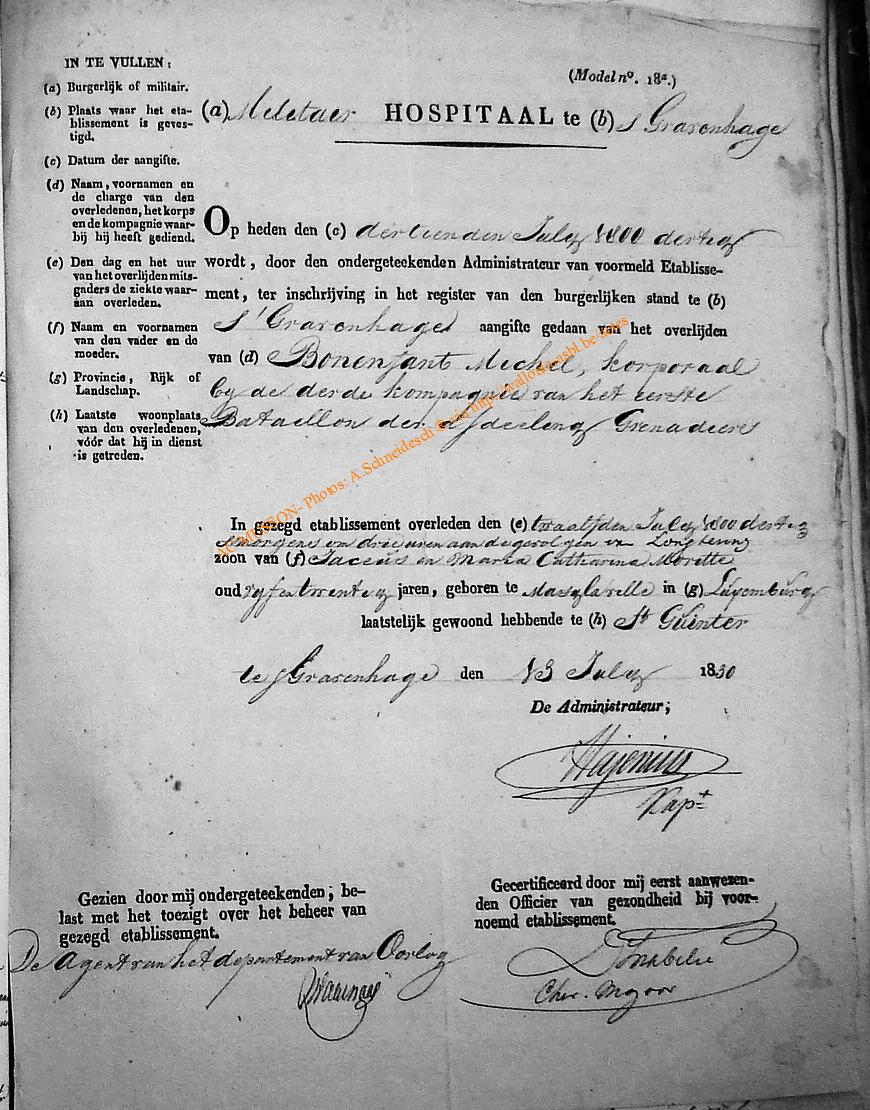 IN TE VULLEN:
(a) Burgerlijk of militair.
(b) Plaats waar het eta-
blissement is geves-
tigd.
(c) Datum der aangifte.
(d) Naam, voornamen en
de charge van den
overledenen, het korps
en de kompagnie waar-
bij hij heeft gediend.
(e) Den dag en het uur
van het overlijden mits-
gaders de ziekte waar-
aan overleden.
(f) Naam en voornamen
van den vader en de
moeder.
(g) Provincie, Rijk of
Landschap.
(h) Laatste woonplaats
van den overledenen,
vóór dat hij in dienst
is getreden.
(Model nº. 18ª.)
(a) Meletaer HOSPITAAL te (b) s Gravenhage
Op heden den (c) dertienden July 1800 dertig
wordt, door den ondergeteekenden Administrateur van voormeld Etablisse-
ment, ter inschrijving in het register van den burgerlijken stand te (b)
s'Gravenhage aangifte gedaan van het overlijden
van (d) Bonenfant Mechel, korporaal
by de derde kompagnie van het eerste
Bataillon der afdeeling Grenadiers
In gezegd etablissement overleden den (e) twaalfden July 1800 dertig
smorgens om drie uren aan de gevolgen van Longtering
zoon van (f) Jaccus en Maria Catharina Morette
oud vyf en twentig jaren, geboren te in (g) Luxemburg
laatstelijk gewoond hebbende te (h) St
te sGravenhage den 13 July 1830
De Administrateur;
Hajenius
Kapt
Gezien door mij ondergeteekenden; be-
last met het toezigt over het beheer van
gezegd etablissement.
De Agent van het departement van Oorlog
Gecertificeerd door mij eerst aanwezen-
den Officier van gezondheid bij voor-
noemd etablissement.
Cher. Mgoor
- Photos: A.Schneidesch